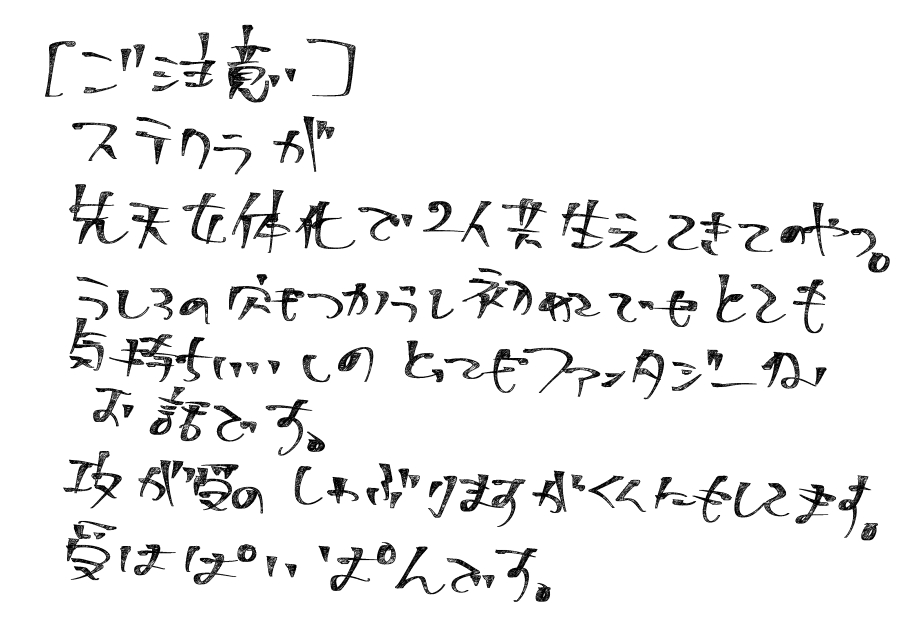 [ご注意]
ステクラが
先天女体化で2人共生えてきてのやつ。
うしろの穴もつかうし初めてでもとても
気持ちい…しの とってもファンタジーな
お話です。
攻が受の しゃぶりますがくんにもしてます。
受はぱいぱんです。